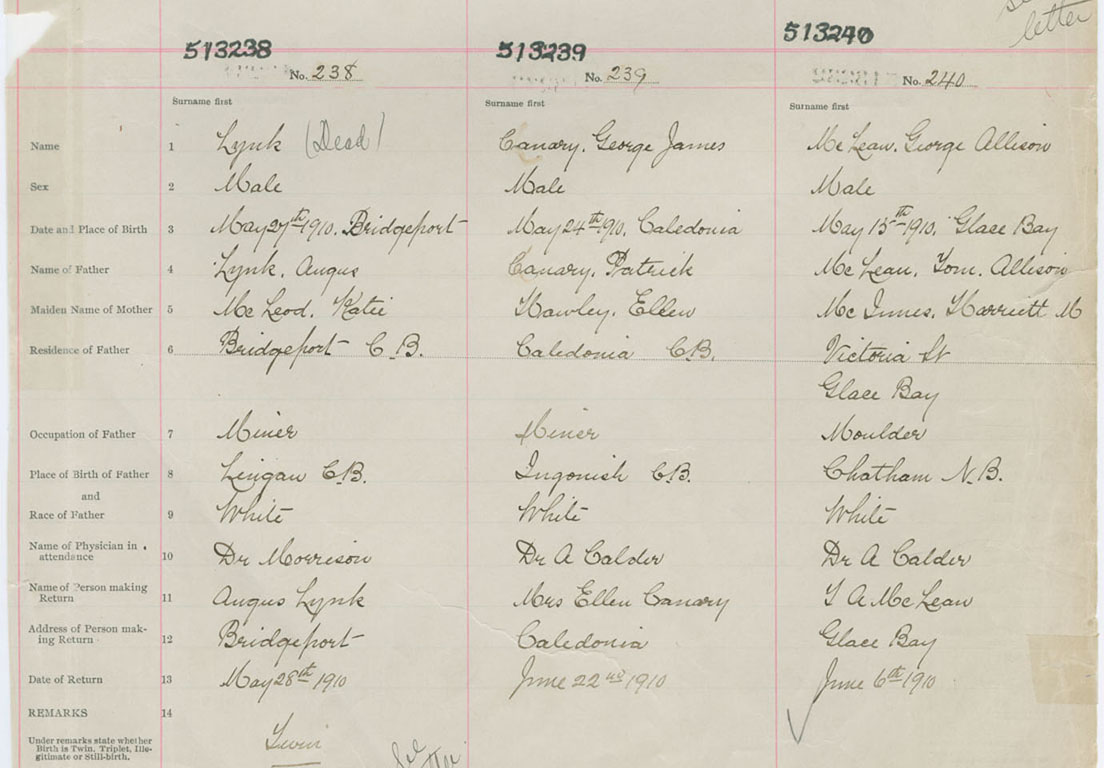 letter
513238 513239 513240
No. 238 No. 239 No. 240
Surname first Surname first Surname first
Name 1 Lynk (Dead) Canary. George James Mc Lean. George Allison
Sex 2 Male Male Male
Date and Place of Birth 3 May 27th 1910. Bridgeport May 24th 1910. Caledonia May 15th 1910. Glace Bay
Name of Father 4 Lynk. Angus Canary. Patrick Mc Lean. Tom. Allison
Maiden Name of Mother 5 Mc Leod. Katie Hawley. Ellen Mc Innes. Harriett M
Residence of Father 6 Bridgeport C.B. Caledonia C.B. Victoria St
Glace Bay
Occupation of Father 7 Miner Miner Moulder
Place of Birth of Father 8 Lingan C.B. Ingonish C.B. Chatham N.B.
and
Race of Father 9 White White White
Name of Physician in
attendance 10 Dr Morrison Dr A Calder Dr A Calder
Name of Person making
Return 11 Angus Lynk Mrs Ellen Canary T A Mc Lean
Address of Person mak-
ing Return 12 Bridgeport Caledonia Glace Bay
Date of Return 13 May 28th 1910 June 22nd 1910 June 6th 1910
REMARKS 14
Under remarks state whether
Birth is Twin, Triplet, Ille-
gitimate or Still-birth.
Twin